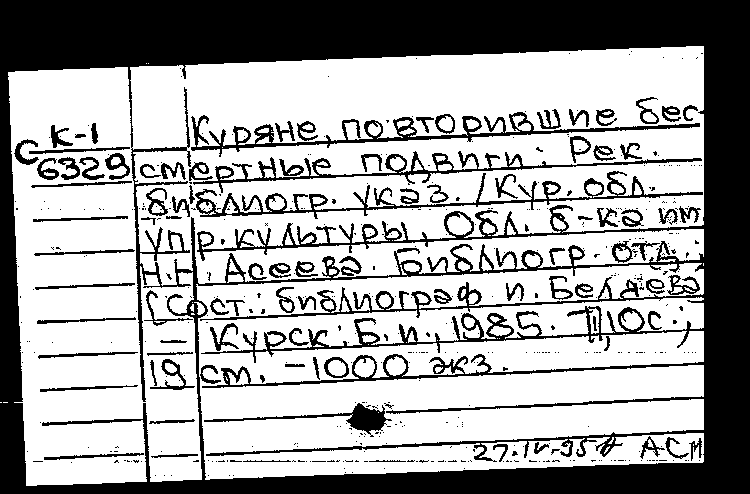 К-1 Куряне, повторившие бес-
С 6329 смертные подвиги: Рек.
библиогр. указ. /Кур. обл.
упр. культуры, Обл. б-ка им.
Н.Н. Асеева. Библиогр. отд.;
[Сост.: библиограф И. Беляева
— Курск: Б.и., 1985. — 10с.;
19 см. — 1000 экз.
27.IV-95 АСМ